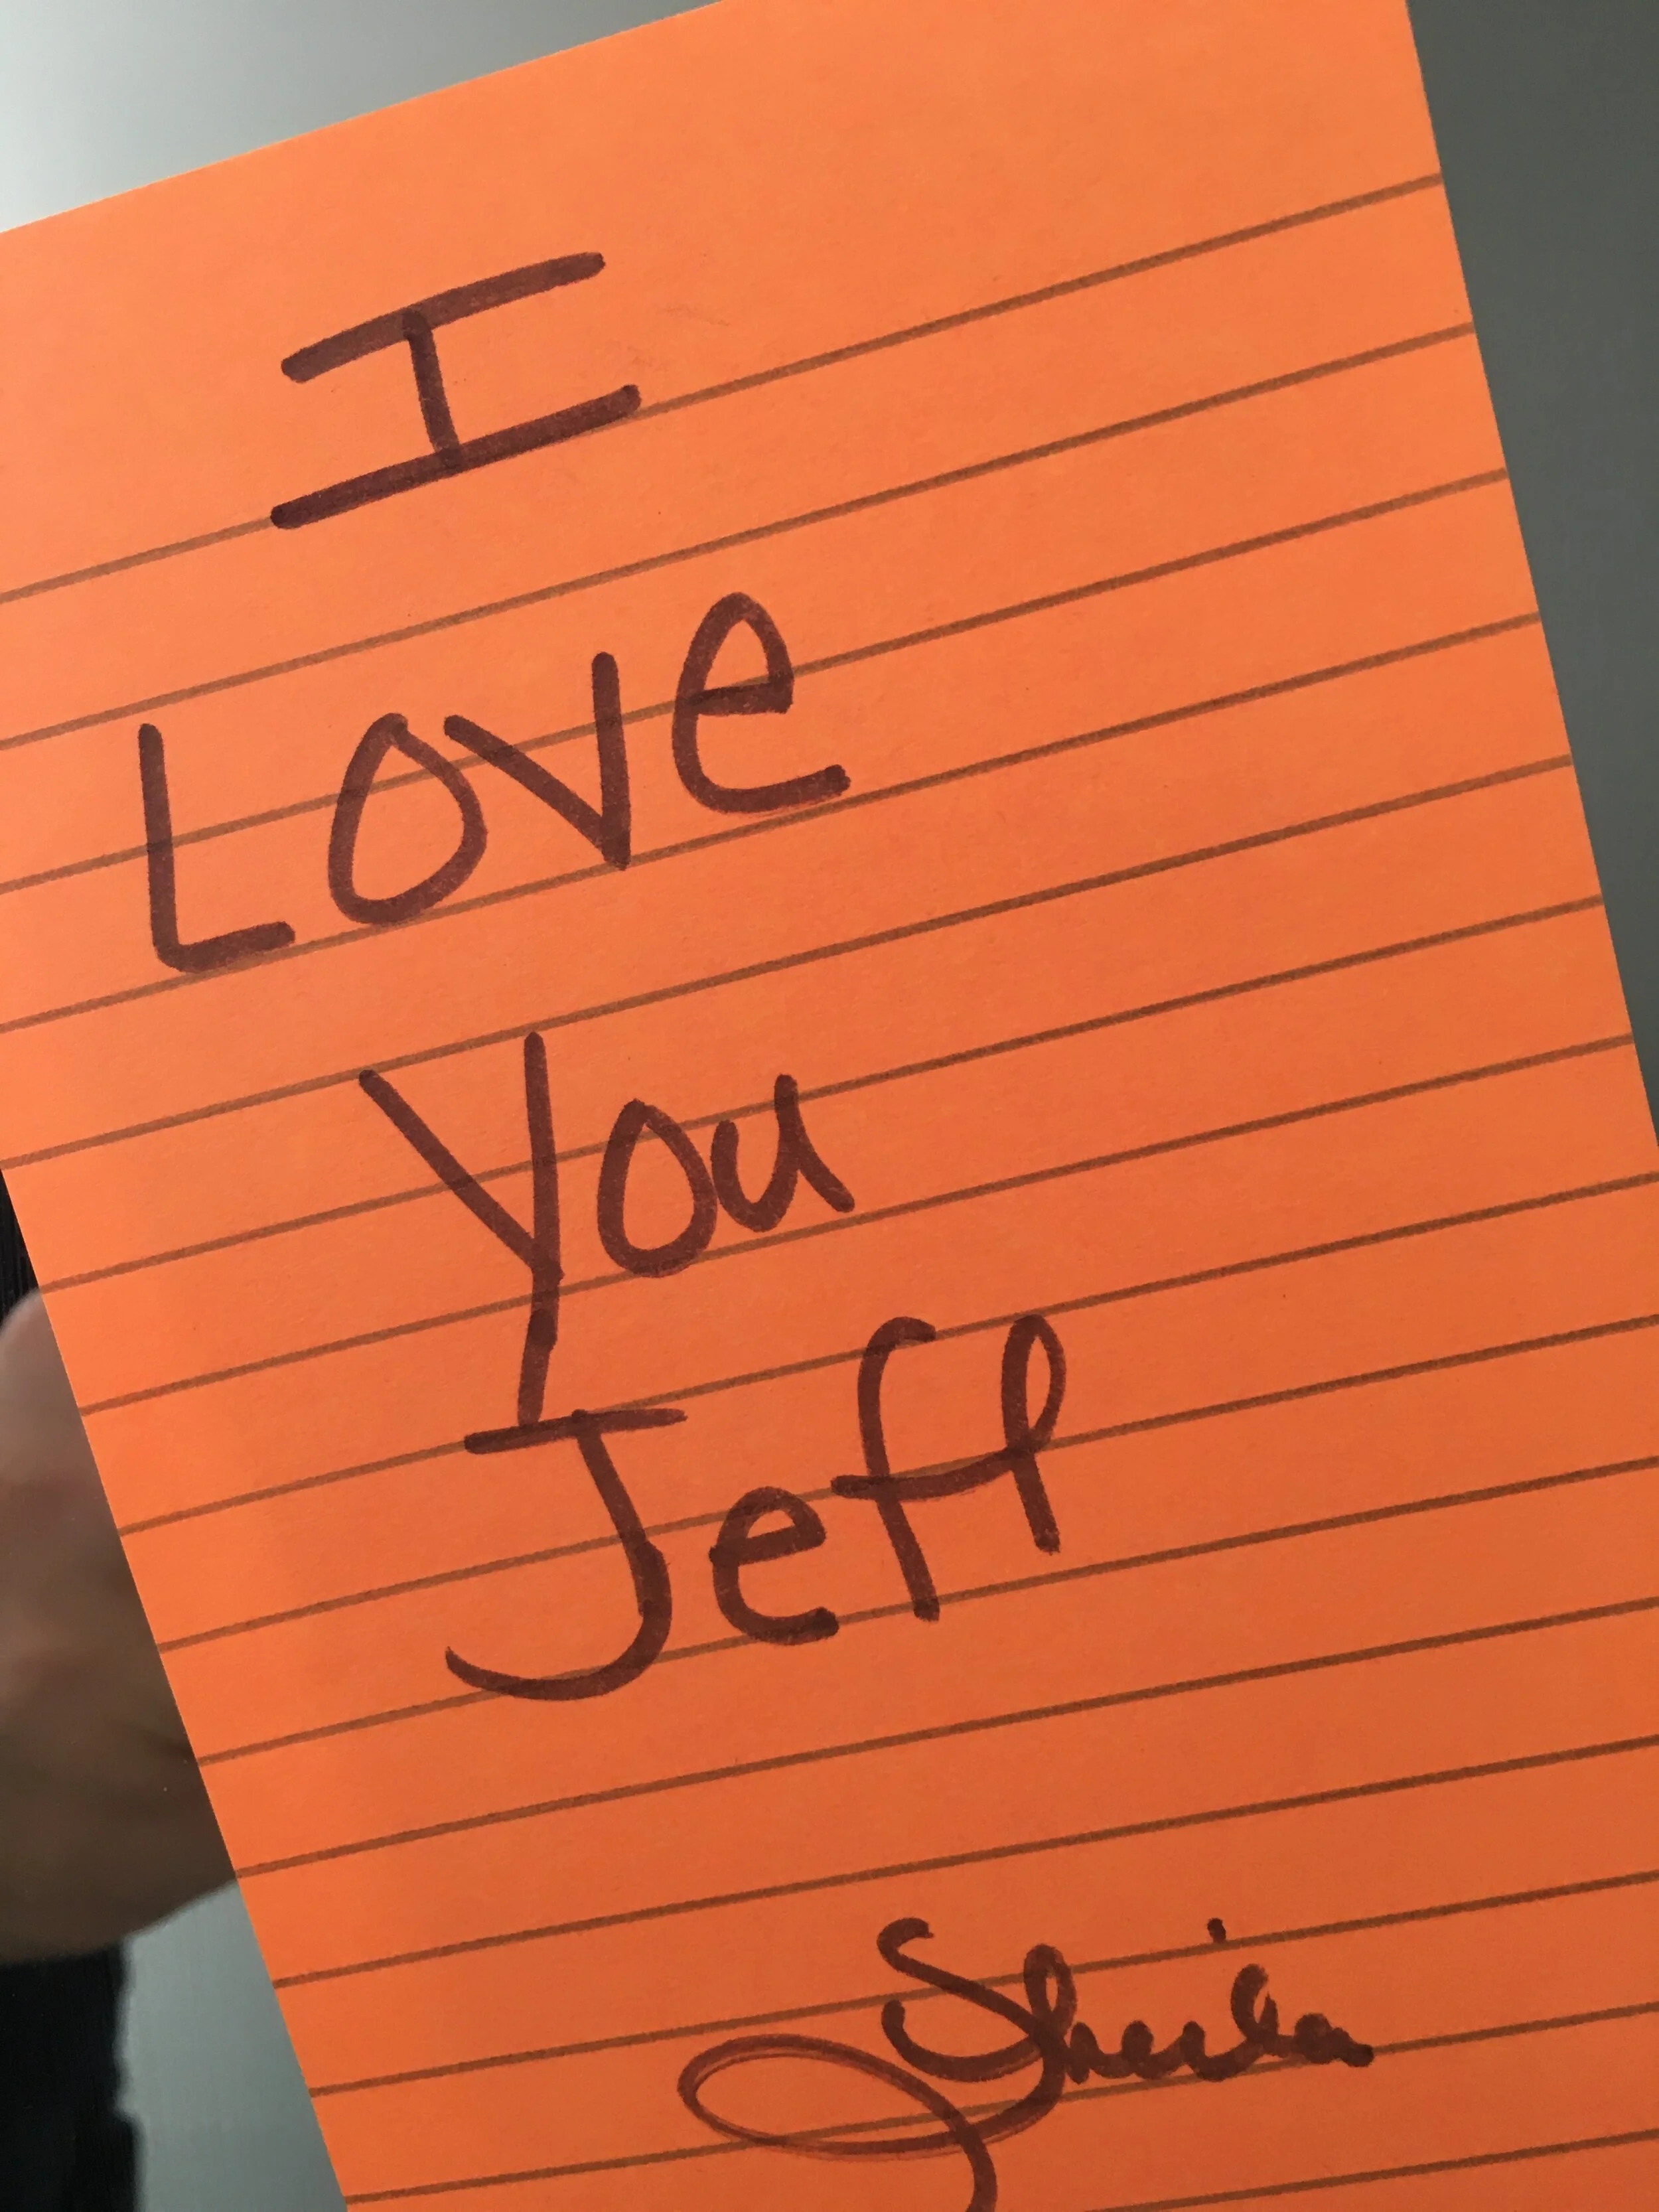 I
Love
You
Jeff
Sheila